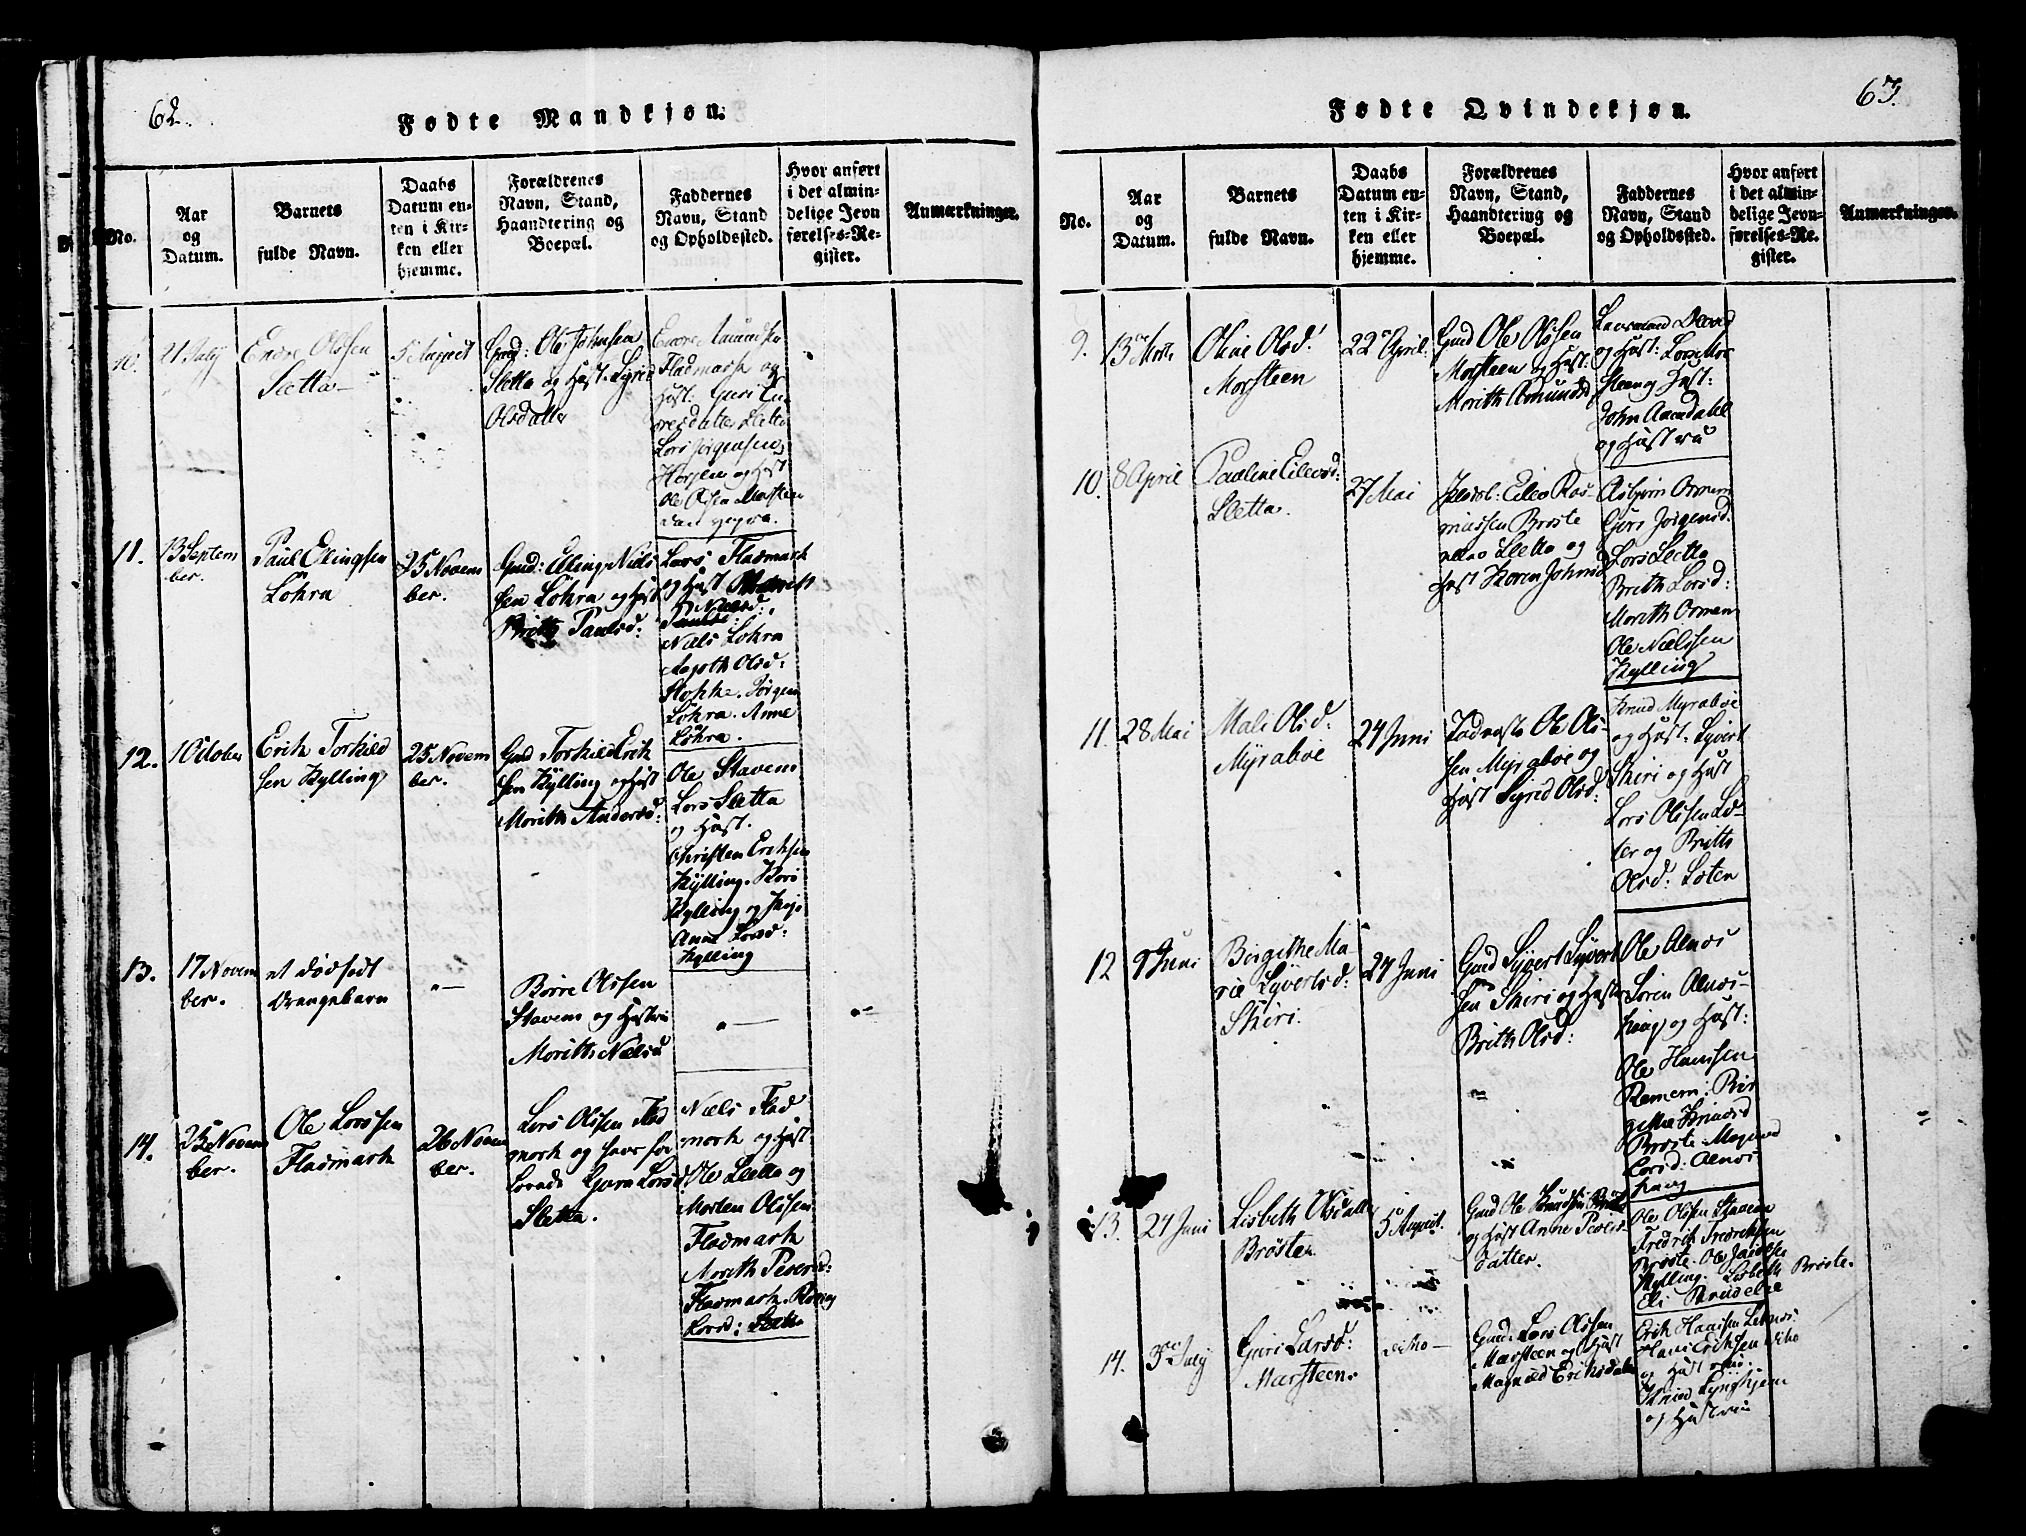 62.
Fødte Mandkjøn.
No.
Aar
og
Datum.
Barnets
fulde Navn.
Daabs
Datum en-
ten i Kir-
ken eller
hjemme.
Forældrenes
Navn, Stand,
Haandtering og
Boepæl.
Faddernes
Navn, Stand
og Opholdssted.
Hvor anført
i det almin-
delige Jevn
førelses-Re-
gister.
Anmærkninger.
10.
21 July
Endre Olssen
Sletta
5 August
Gmd: Ole Johnsen
Sletta og Hust. Syned
Olsdatter
Fladmark og
Hust: Guri En-
dresdatter Sletta
Lars Jørgensen
og Hust
11.
13 Septem
ber.
Paul Elingsen
Løhra
25 Novem
ber.
Gmd: Elling Niels
sen Løhra og Hust
Britth Paulsd:
Lars Fladmark
og Hust
Nielsd:
Niels Løhra
Aagoth Olsd:
Stokke. Jørgen
Løhra. Anne
Løhra.
12.
1 October
Erik Torkild
sen Kylling
25 Novem
ber.
Gmd Torkild Erik
sen Kylling og Hust
Morith Andersd:
Ole Stavem
Lars Sletta
og Hust.
Christen Eriksen
Kylling. Kari
Kylling og
Anne Larsd:
Kylling
13.
17 Novem
ber.
et dødfødt
Drengebarn
"—
Børre Olssen
Stavem og Hustru
Morith Nielsd
"—
"–
14.
23 Novem
ber.
Ole Larssen
Fladmark
26 Novem
ber.
Lars Olssen Flad
mark og
Larsd
Sletta.
Niels Flad
mark og Hust
Ole Sletta og
Morten Olssen
Fladmark
Morith Pedersd:
Fladmark.
Larsd: Sletta
63.
Fødte Qvindekjøn.
No.
Aar
og
Datum.
Barnets
fulde Navn.
Daabs
Datum en-
ten i Kir-
ken eller
hjemme.
Forældrenes
Navn, Stand,
Haandtering og
Boepæl.
Faddernes
Navn, Stand
og Opholdssted.
Hvor anført
i det almin-
delige Jevn-
førelses-Re-
gister.
Anmærkninger.
9.
13de Marts
Oline Olsd:
Marsteen
22 April.
Gmd Ole Olssen
Marsteen og Hust:
Morith Amundsd
og Hust: Lars Mar
steen og Hust:
John Aandahl
og Hustru
10.
8 April
Pauline Eilevsd:
Sletta.
27 Mai
Eilev Ras-
mussen Brøste
Sletta og
Hust Karen Johnsd
Asbjørn Ormem
Guri Jørgensd.
Lars Sletta
Brith Larsd:
Morith Ormem
Ole Nielssen
Kylling
11.
28 Mai
Mali Olsd:
Myraboe
24 Juni
Ole Ols
sen Myraboe og
Hust Syned Olsd:
Knud Myraboe
og Hust. Syvert
Skiri og Hust
Lars Olssen
og Britth
Olsd:
12
9 Juni
Birgithe Ma
rie Syvertsd:
Skiri.
24 Juni
Gmd Syvert Syvert
sen Skiri og Hustru
Britth Olsd:
Ole Alnæs
Søren Alnæs-
houg og Hust:
Ole Hanssen
Remem. Bir
githe Knudsd
Brøste
Larsd: Alnæs
houg
13.
24 Juni
Lisbeth Olsdatter
Brøsten
5 August.
Gmd Ole Knudsen Brøste
og Hust Anne Peders-
datter.
Ole Olssen Stavem
Fredrik Fredriksen
Brøste. Ole
Kylling. Lisbeth Brøste.
Eli
14.
3de July
Guri Larsd:
Marsteen.
Gmd. Lars Olssen
Marsteen og Hust
Magnild Eriksdatter
Erik Hanssen
Hans Eriksen
og Hustrue:
Knud Lyngheim
og Hustrue